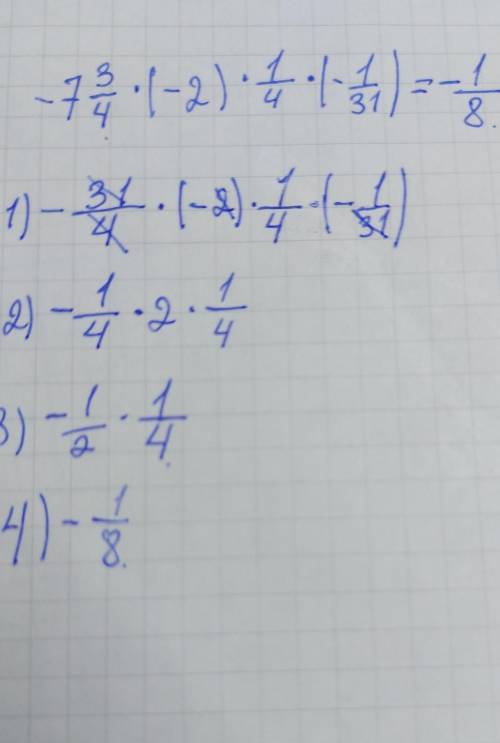 -7 3/4 · (-2) · 1/4 · (-1/31) = -1/8
1) - 31/4 · (-2) · 1/4 · (-1/31)
2) - 1/4 · 2 · 1/4
3) - 1/2 · 1/4
4) - 1/8